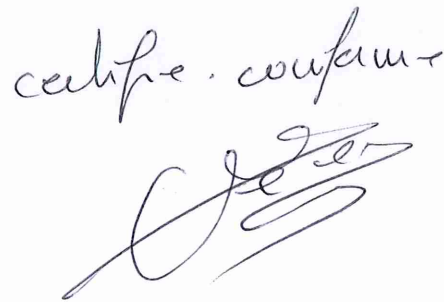 certifie conforme